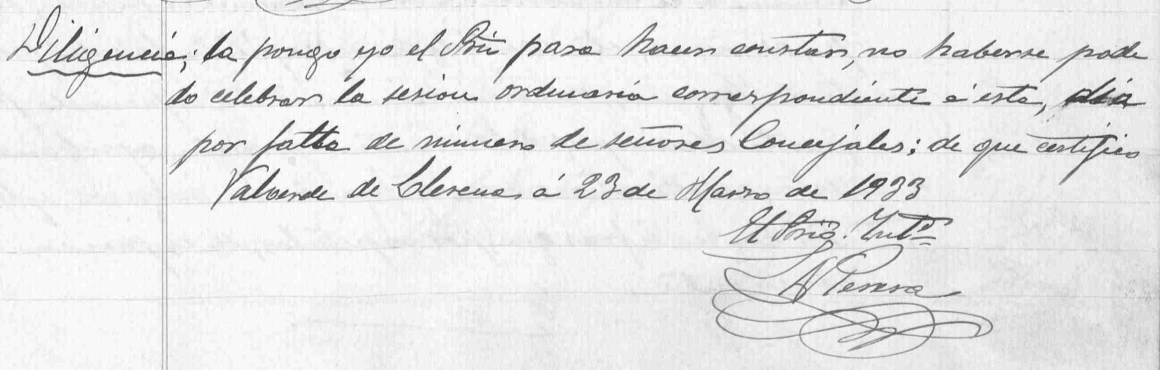 Diligencia; la pongo yo el Srio para hacer constar, no haberse podi
do celebrar la sesion ordinaria correspondiente á este, día
por falta de número de señores Concejales; de que certifico
Valverde de Llerena á 23 de Marzo de 1933
El Srio. Intº
A Perera